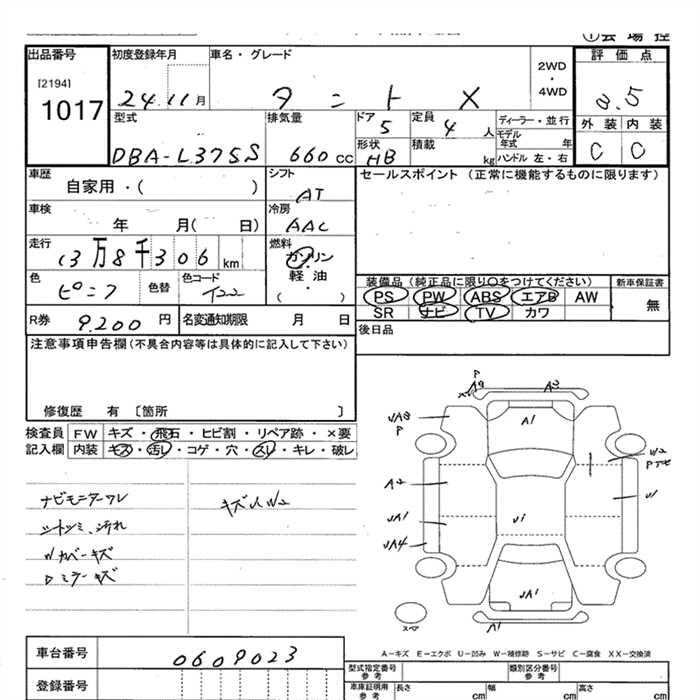 出品番号
[2194]
1017
初度登録年月
24.11月
車名・グレード
タント X
2WD
・
4WD
評価点
3.5
型式
DBA-L375S
排気量
660cc
ドア
5
定員
4人
ディーラー・並行
モデル年式 年
ハンドル 左・右
形状
HB
積載
kg
外装 内装
C C
車歴
自家用・( )
シフト
AT
セールスポイント (正常に機能するものに限ります)
車検
年 月( 日)
冷房
AAC
走行
13万8千306km
燃料
ガソリン
軽・油
・
( )
色
ピンク
色替
色コード
T22
装備品 (純正品に限り○をつけてください)
新車保証書
PS PW ABS エアB AW
SR ナビ TV カワ
無
R券
9,200円
名変通知期限 月 日
後日品
注意事項申告欄(不具合内容等は具体的に記入して下さい)
修復歴 有 〔箇所 〕
検査員
記入欄
FW キズ・飛石・ヒビ割・リペア跡・×要
内装 キズ・汚レ・コゲ・穴・スレ・キレ・破レ
ナビモニターワレ
シートシミ、汚れ
Wカバーキズ
Dミラーキズ
A2
A1
A2
W2
UA1
UA4
A1
スペア
A-キズ E-エクボ U-凹み W-補修跡 S-サビ C-腐食 XX-交換済
車台番号
0609023
登録番号
型式指定番号
参考
類別区分番号
参考
車庫証明用
参考
長さ cm
幅 cm
高さ cm